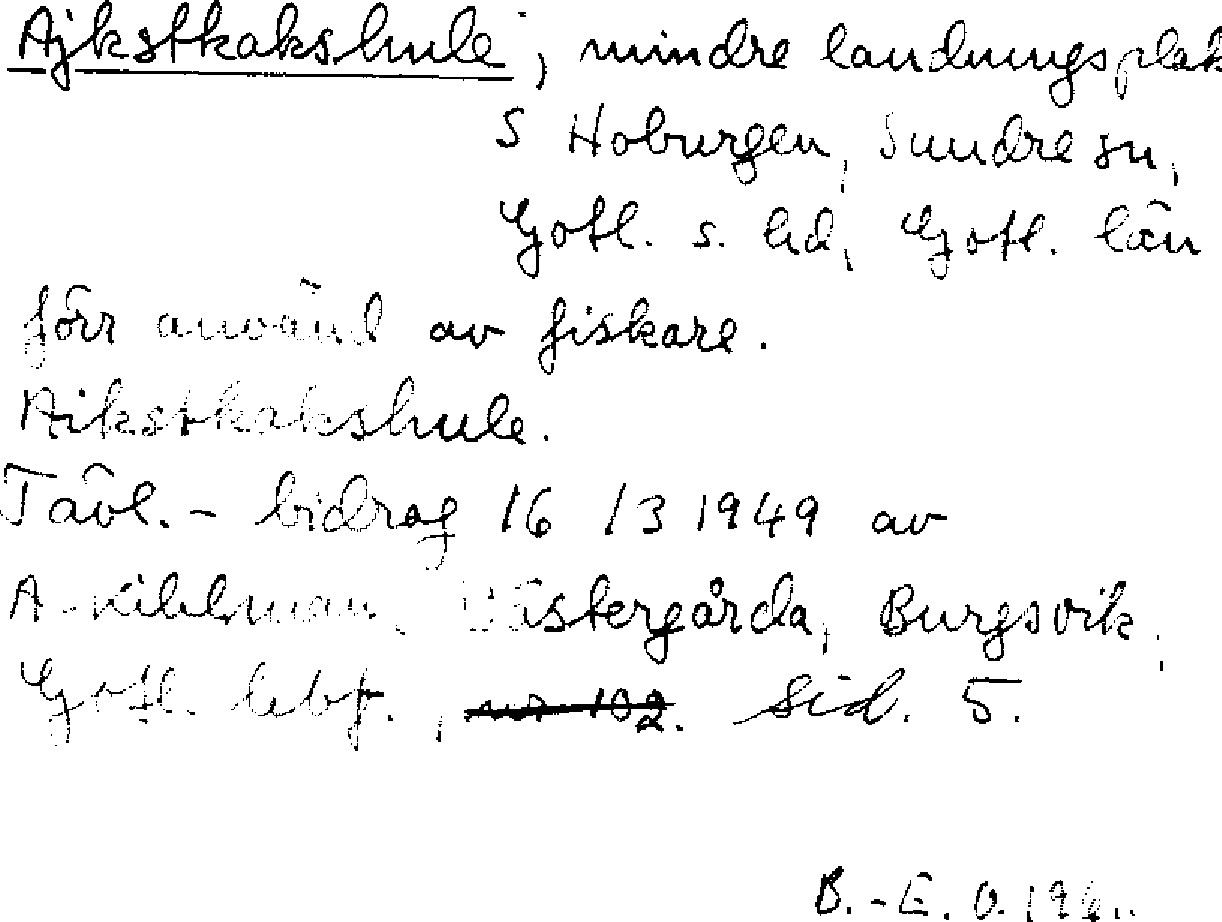 Ajkstkakshule, mindre landningsplats
S Hoburgen, Sundre sn,
Gotl. s. hd, Gotl. län
förr använd av fiskare.
Aikstkakshule.
Tävl.- bidrag 16/3 1949 av
A. Kihlman, Västergårda, Burgsvik,
Gotl. lbf., nr 102. Sid. 5.
B.-E. O.